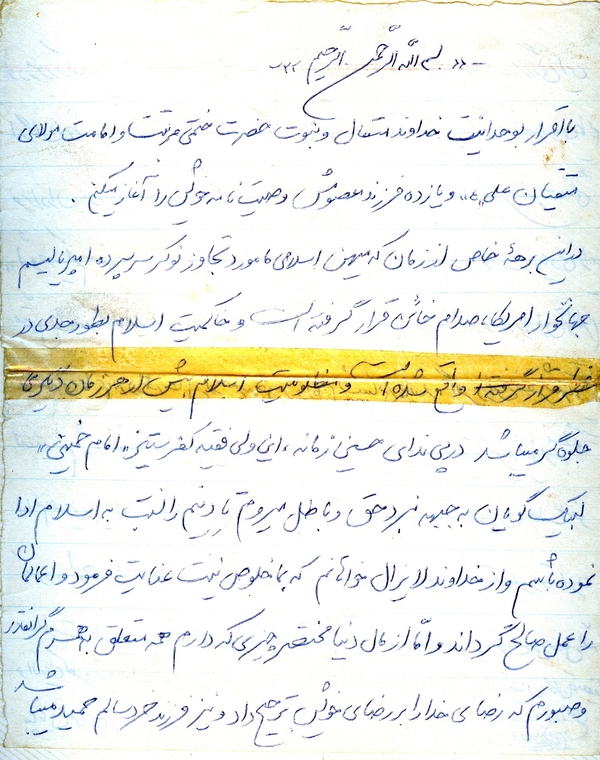 «بسم الله الرحمن الرحیم»
با اقرار بوحدانیت خداوند متعال و نبوت حضرت ختمی مرتبت و امامت مولای
متقیان علی «ع» و یازده فرزند معصومش وصیت نامه خویش را آغاز میکنم.
در این برههٔ خاص از زمان که میهن اسلامی ما مورد تجاوز نوکر سرسپرده امپریالیسم
جهانخوار امریکا، صدام خائن قرار گرفته است و حاکمیت اسلام بطور جدی در
خطر قرار گرفته واقع شده است و مظلومیت اسلام بیش از هر زمان دیگری
جلوه گر میباشد در پی ندای حسین زمانه، این ولی فقیه کفر ستیز «امام خمینی»
لبیک گویان به جبهه نبرد حق و باطل میروم تا دینم را نسبت به اسلام ادا
نموده باشم و از خداوند لایزال خواهانم که بما خلوص نیت عنایت فرمود و اعمالمان
را عمل صالح گرداند و اما از مال دنیا مختصر چیزی که دارم همه متعلق به همسرم گرانقدر
و صبورم که رضای خدا را بر رضای خویش ترجیح داد و نیز فرزند خردسالم حمید میباشد